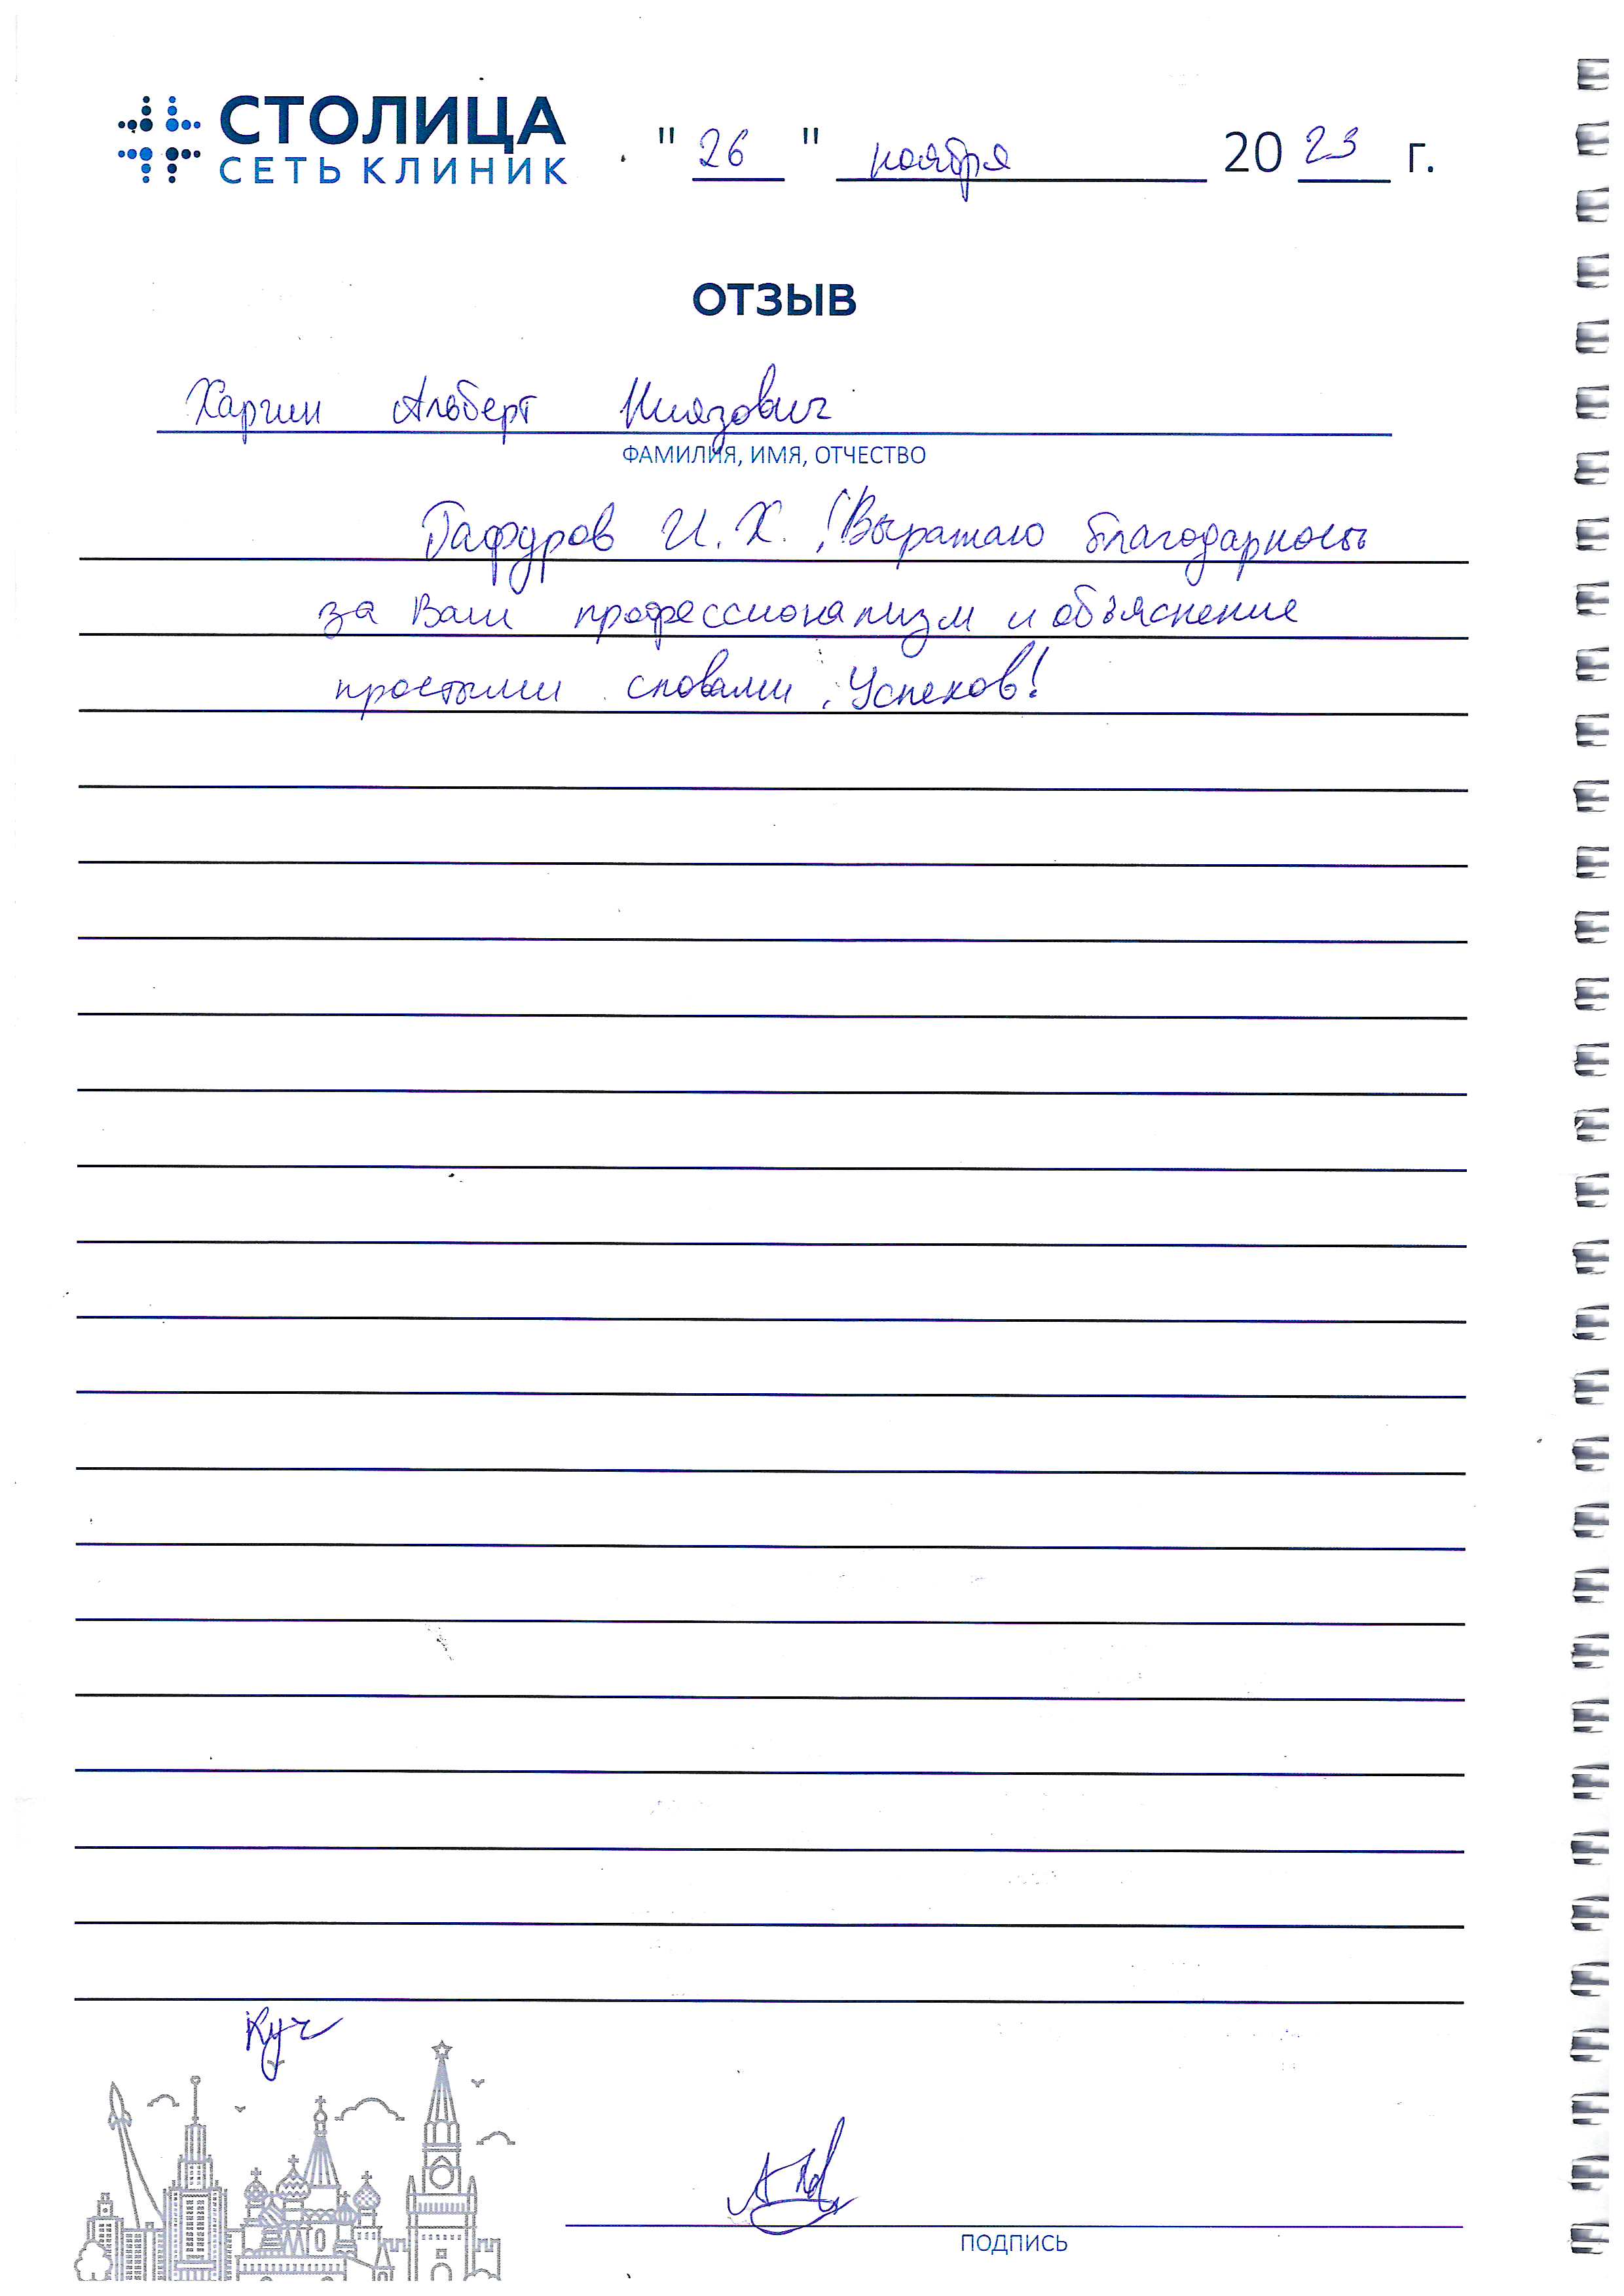 СТОЛИЦА
СЕТЬ КЛИНИК
" 26 " ноября 20 23 г.
ОТЗЫВ
Харгин Альберт Ниязович
ФАМИЛИЯ, ИМЯ, ОТЧЕСТВО
Гафуров И. Х. ! Выражаю благодарность
за Ваш профессионализм и объяснение
простыми словами. Успехов!
Куч
ПОДПИСЬ